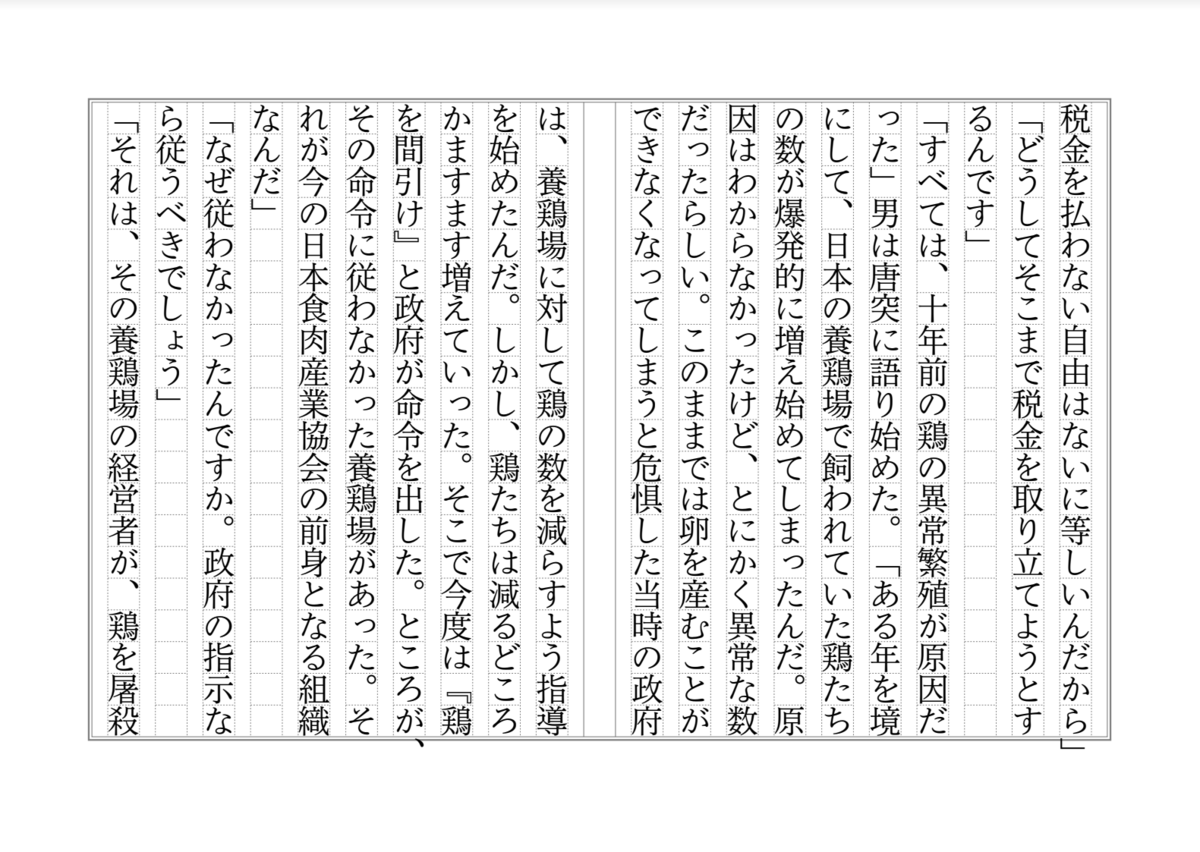 税金を払わない自由はないに等しいんだから」
「どうしてそこまで税金を取り立てようとす
るんです」
「すべては、十年前の鶏の異常繁殖が原因だ
った」男は唐突に語り始めた。「ある年を境
にして、日本の養鶏場で飼われていた鶏たち
の数が爆発的に増え始めてしまったんだ。原
因はわからなかったけど、とにかく異常な数
だったらしい。このままでは卵を産むことが
できなくなってしまうと危惧した当時の政府
は、養鶏場に対して鶏の数を減らすよう指導
を始めたんだ。しかし、鶏たちは減るどころ
かますます増えていった。そこで今度は『鶏
を間引け』と政府が命令を出した。ところが、
その命令に従わなかった養鶏場があった。そ
れが今の日本食肉産業協会の前身となる組織
なんだ」
「なぜ従わなかったんですか。政府の指示な
ら従うべきでしょう」
「それは、その養鶏場の経営者が、鶏を屠殺